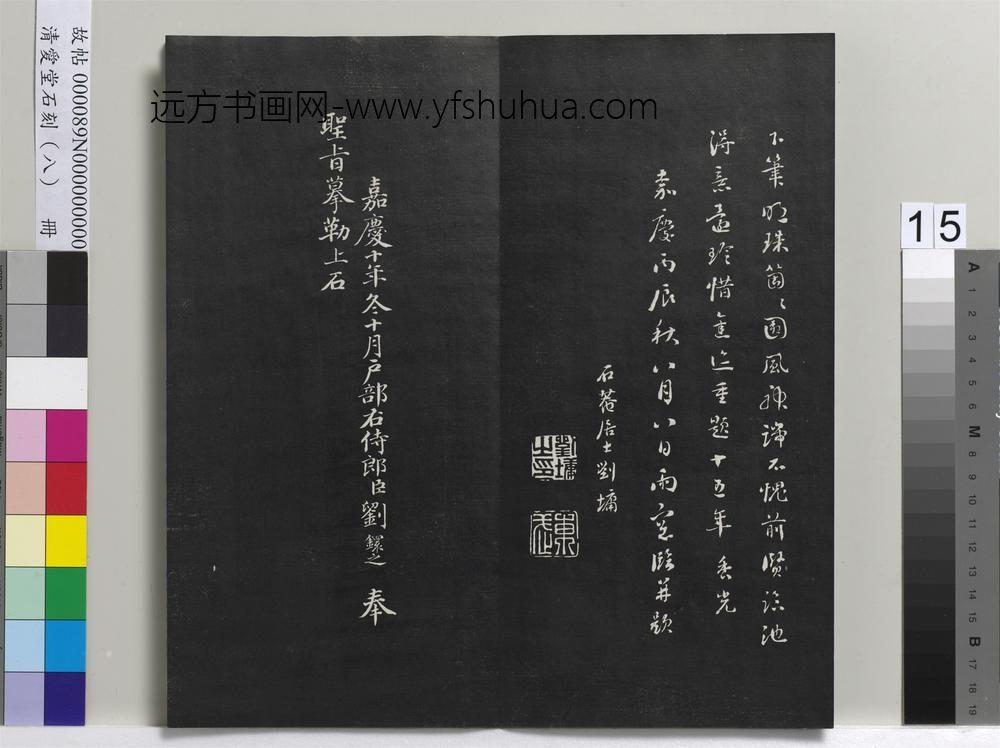 下筆明珠箇〻圓風神端不愧前賢臨池
得意盡珍惜
重題十五年 香光
嘉慶丙辰秋八月八日雨窓臨并題
石菴居士劉墉
劉墉之印
嘉慶十年冬十月戶部右侍郎臣劉鐶之 奉
聖旨摹勒上石
远方书画网-www.yfshuhua.com
故帖 000089N000000000
清愛堂石刻(八) 冊
15
A 1 2 3 4 5 6 M 8 9 10 11 12 13 14 15 B 17 18 19